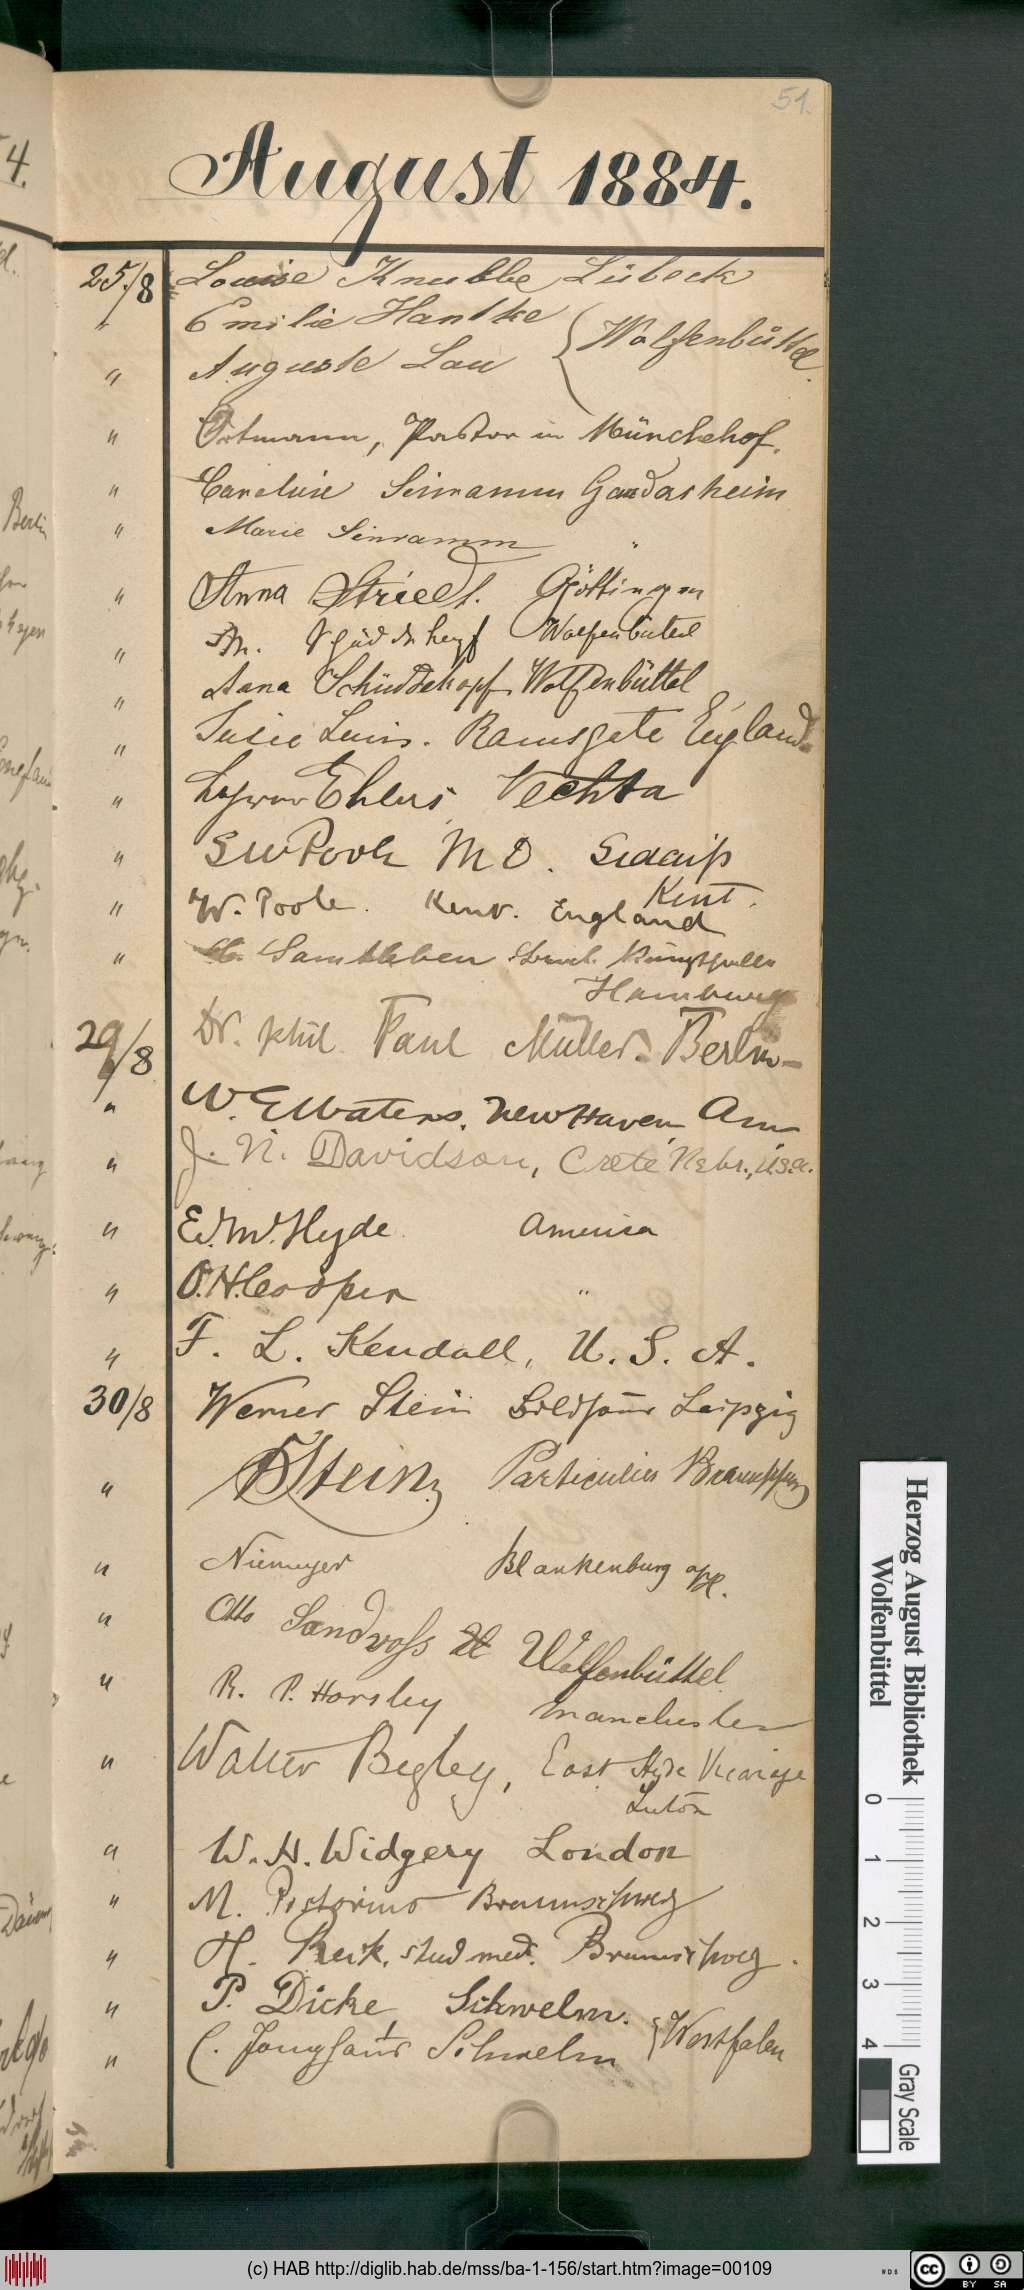 51.
August 1884.
25./8 Louise Knubbe Lübeck
" Emilie Hantke
" Auguste Lau } Wolfenbüttel.
" Ortmann, Pastor in Münchehof.
" Caroline Sinramm Gandersheim
" Marie Sinramm "
" Anna Strieel. Göttingen
" Wolfenbüttel
" Anna Schüddekopf, Wolfenbüttel
" Susie Lewis. Ramsgate England
" Ehlers, Vechta
" SW Poole M D. Sidcup
Kent.
" W. Poole. Kent. England
" Samtleben
Hamburg
29/8 Dr. phil Paul Müller. Berlin
" W. E. Waters. New Haven Am
" J. N. Davidson, Crete, Nebr., U.S.A.
" Ed. M. Hyde America
" O. H. Cooper "
" F. L. Kendall, U. S. A.
30/8 Werner Stein Bildhauer Leipzig
" Stein, Particulier Braunschweig
" Niemeyer Blankenburg a/H.
" Otto Sandvoss Wolfenbüttel
" R. P. Horsley Manchester
" Walter Begley, East Hyde Vicarage
Luton
" W. H. Widgery London
" M. Pistorius Braunschweig
" H. Beck, stud med. Braunschweig.
" P. Dicke Schwelm.
" C. Junghans Schwelm } Westfalen
4.
Berlin
Herzog August Bibliothek
Wolfenbüttel
0 1 2 3 4
Gray Scale
(c) HAB http://diglib.hab.de/mss/ba-1-156/start.htm?image=00109
cc BY SA